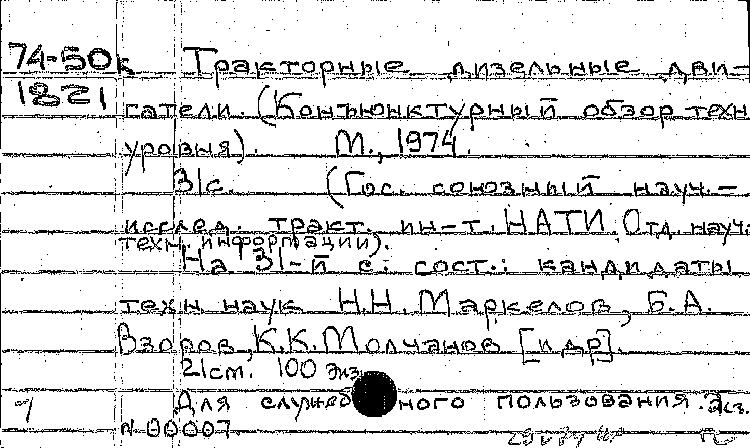 74-50к Тракторные дизельные дви-
1821 гатели. (Конъюнктурный обзор техн
уровня). М., 1974.
31с. (Гос. союзный науч.-
исслед. тракт. ин-т. НАТИ. Отд. науч.
техн. информации).
На 31-й с. сост.: кандидаты
техн наук Н.Н. Маркелов, Б.А.
Взоров, К.К. Молчанов [и др].
21см. 100 экз.
Для служеб ного пользования. Экз.
N 00007.